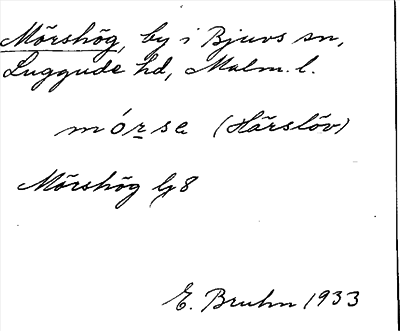 Mörshög, by i Bjuvs sn,
Luggude hd, Malm. l.
mórsa (Härslöv)
Mörshög Gg 8
E. Bruhn 1933